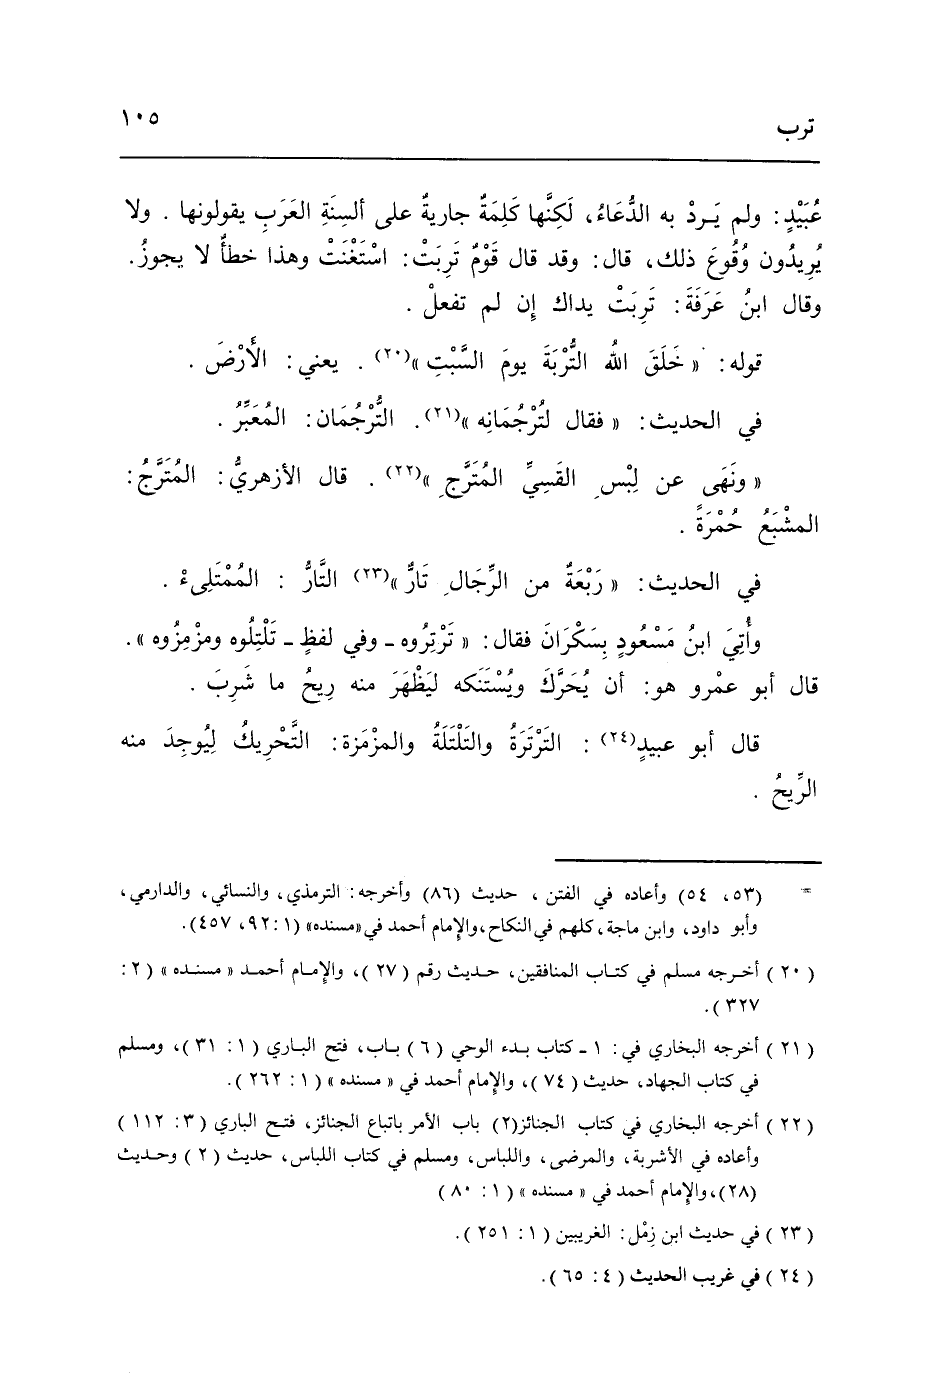 ترب ١٠٥
عُبَيْدٍ: ولم يَـردْ به الدُّعَاءُ، لَكِنَّها كَلِمَةٌ جاريةٌ على ألسِنَةِ العَرَبِ يقولونها . ولا
يُرِيدُون وُقُوعَ ذلك، قال: وقد قال قَوْمٌ تَرِبَتْ: اسْتَغْنَتْ وهذا خطأٌ لا يجوزُ.
وقال ابنُ عَرَفَةَ: تَرِبَتْ يداك إِن لم تفعلْ .
قوله: « خَلَقَ الله التُّرْبَةَ يومَ السَّبْتِ »(٢٠) . يعني: الأَرْضَ .
في الحديث: « فقال لتُرْجُمَانِه »(٢١). التُّرْجُمَان: المُعَبِّرُ .
« ونَهَى عن لِبْسِ القَسِيِّ المُتَرَّجِ »(٢٢) . قال الأزهريُّ: المُتَرَّجُ:
المشْبَعُ حُمْرَةً .
في الحديث: « رَبْعَةٌ من الرِّجَالِ تَارٌّ »(٢٣) التَّارُّ : المُمْتَلِىءْ .
وأُتِيَ ابنُ مَسْعُودٍ بِسَكْرَانَ فقال: « تَرْتِرُوه ـ وفي لفظٍ ـ تَلْتِلُوه ومزْمِزُوه ».
قال أبو عمْرو هو: أن يُحَرَّكَ ويُسْتَنكه ليَظْهَرَ منه رِيحُ ما شَرِبَ .
قال أبو عبيدٍ(٢٤) : التَرْتَرَةُ والتَلْتَلَةُ والمزْمَزة: التَّحْرِيكُ لِيُوجِدَ منه
الرِّيحُ .
= (٥٣، ٥٤) وأعاده في الفتن ، حديث (٨٦) وأخرجه: الترمذي، والنسائي، والدارمي،
وأبو داود، وابن ماجة، كلهم في النكاح،والإمام أحمد في«مسنده» (١ :٩٢، ٤٥٧).
( ٢٠ ) أخـرجه مسلم في كتـاب المنافقين، حـديث رقم ( ٢٧ )، والإمـام أحمـد « مسنـده » ( ٢ :
٣٢٧ ).
( ٢١ ) أخرجه البخاري في: ١ ـ كتاب بدء الوحي ( ٦ ) بـاب، فتح البـاري ( ١ : ٣١ )، ومسلم
في كتاب الجهاد، حديث ( ٧٤ )، والإمام أحمد في « مسنده » ( ١ : ٢٦٢ ).
( ٢٢ ) أخرجه البخاري في كتاب الجنائز(٢) باب الأمر باتباع الجنائز، فتـح الباري ( ٣: ١١٢ )
وأعاده في الأشربة، والمرضى، واللباس، ومسلم في كتاب اللباس، حديث ( ٢ ) وحـديث
(٢٨)، والإمام أحمد في « مسنده » ( ١ : ٨٠ )
( ٢٣ ) في حديث ابن زِمْل: الغريبين ( ١ : ٢٥١ ).
( ٢٤ ) في غريب الحديث ( ٤ : ٦٥ ).